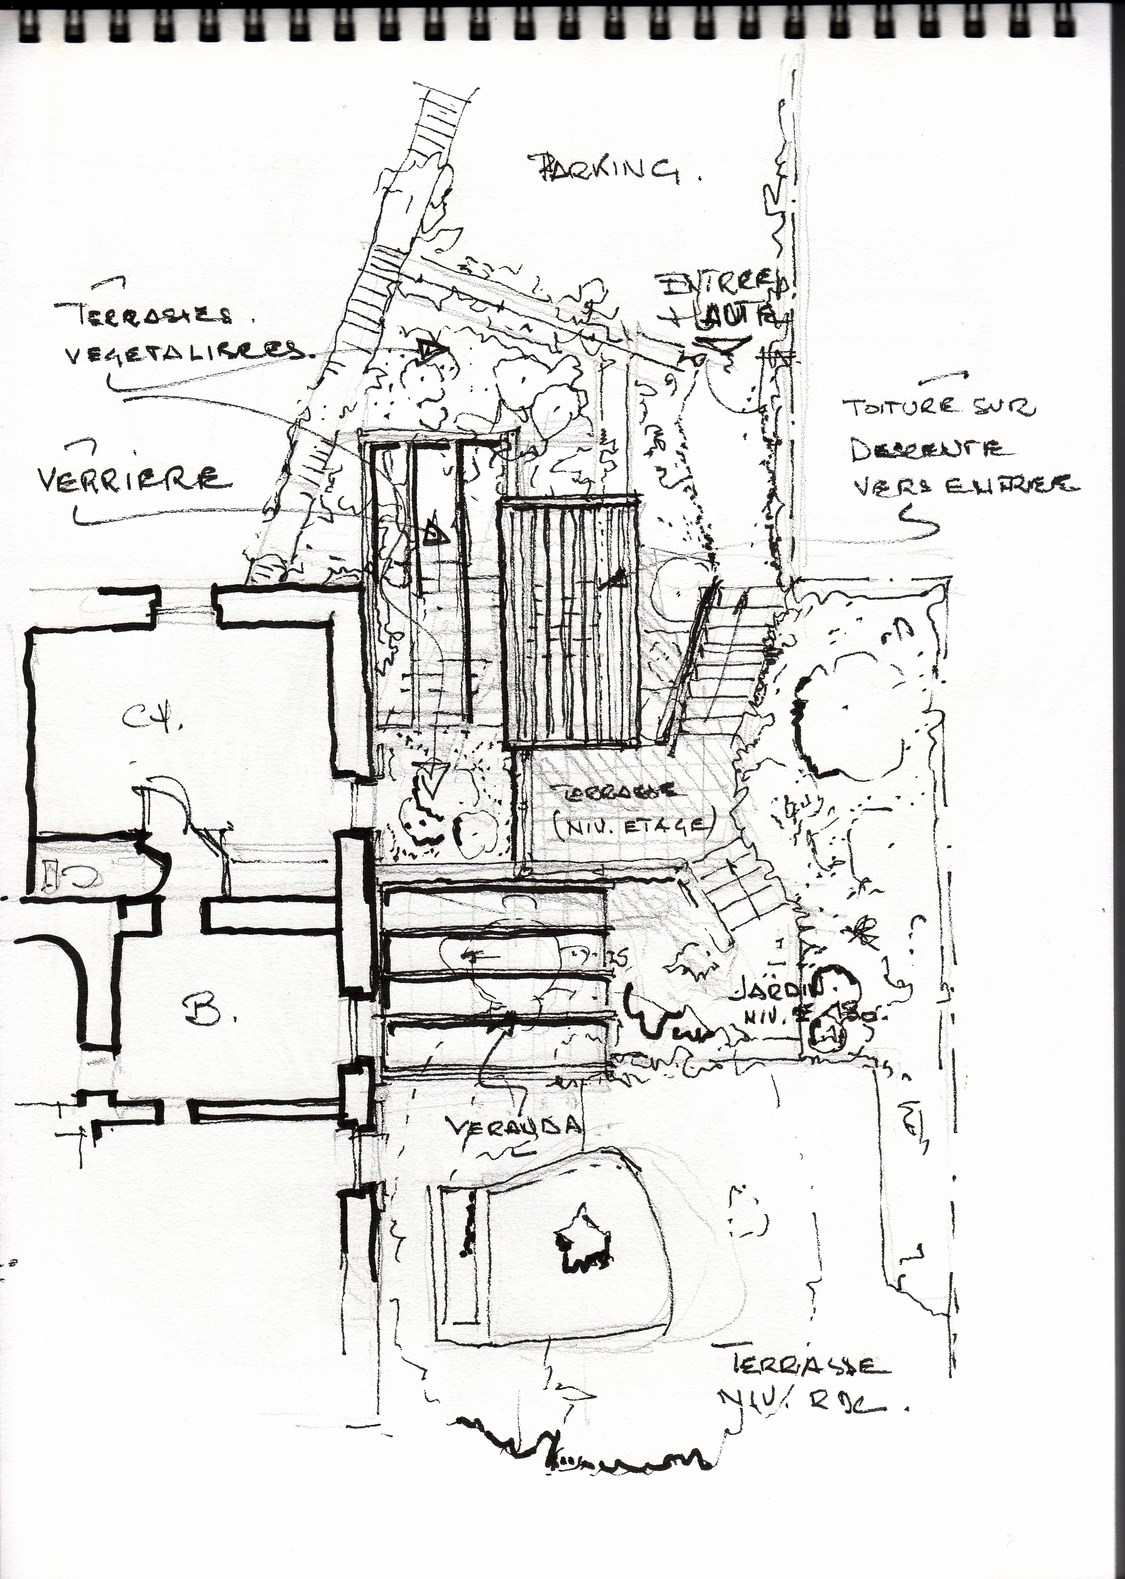 PARKING.
ENTREE
HAUTE
TERRASSES.
VEGETALISEES.
TOITURE SUR
DESCENTE
VERS ENTREE
VERRIERE
CH.
TERRASSE
(NIV. ETAGE)
B.
JARDIN
VERANDA
TERRASSE
NIV. RDC.